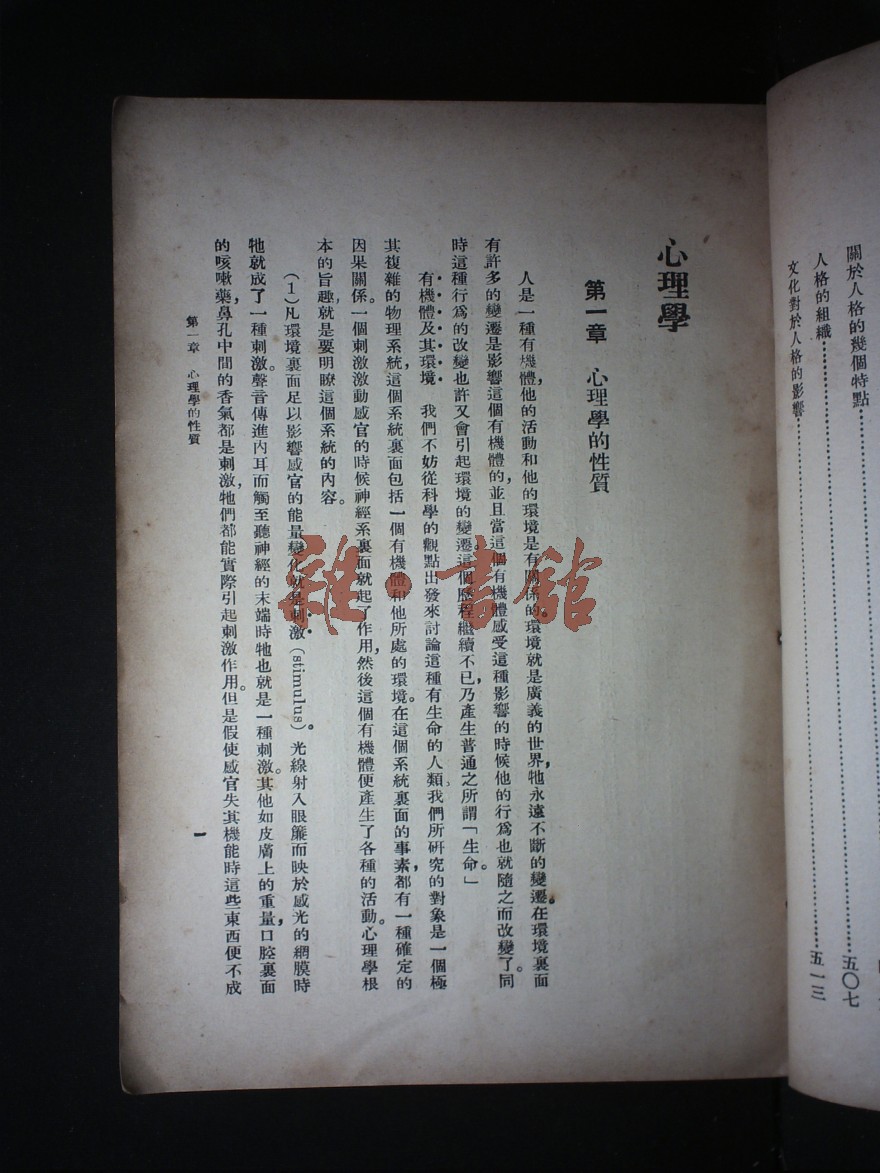 關於人格的幾個特點⋯⋯⋯⋯五〇七
人格的組織⋯⋯⋯⋯
文化對於人格的影響⋯⋯⋯⋯五一三
心理學
第一章 心理學的性質
人是一種有機體，他的活動和他的環境是有關係的。環境就是廣義的世界，牠永遠不斷的變遷。在環境裏面
有許多的變遷是影響這個有機體的，並且當這個有機體感受這種影響的時候他的行爲也就隨之而改變了。同
時這種行爲的改變也許又會引起環境的變遷。這個歷程繼續不已，乃產生普通之所謂「生命。」
有機體及其環境 我們不妨從科學的觀點出發來討論這種有生命的人類。我們所研究的對象是一個極
其複雜的物理系統，這個系統裏面包括一個有機體和他所處的環境。在這個系統裏面的事素都有一種確定的
因果關係。一個刺激激動感官的時候神經系裏面就起了作用，然後這個有機體便產生了各種的活動。心理學根
本的旨趣就是要明瞭這個系統的內容。
（1）凡環境裏面足以影響感官的能量變化就是刺激（stimulus）。光線射入眼簾而映於感光的網膜時
牠就成了一種刺激。聲音傳進內耳而觸至聽神經的末端時牠也就是一種刺激。其他如皮膚上的重量，口腔裏面
的咳嗽藥，鼻孔中間的香氣都是刺激，牠們都能實際引起刺激作用。但是假使感官失其機能時這些東西便不成
第一章 心理學的性質
一
雜·書館